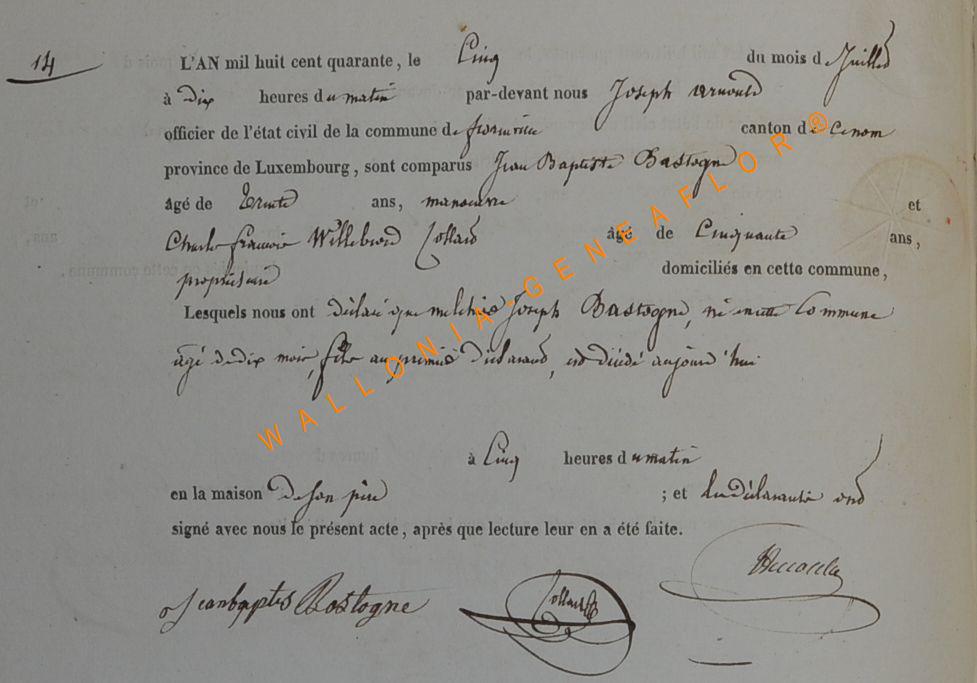 14
L'AN mil huit cent quarante, le Cinq du mois de Juillet
à dix heures du matin par-devant nous Joseph arnould
officier de l'état civil de la commune de canton de
province de Luxembourg, sont comparus Jean Baptiste Bastogne
âgé de Trente ans, manoeuvre et
Charles françois Willebrord Collard âgé de Cinquante ans,
propriétaire domiciliés en cette commune,
Lesquels nous ont déclaré que melchior Joseph Bastogne, né en cette Commune
âgé de dix mois, fils au premier déclarant, est décédé aujourd'hui
à Cinq heures du matin
en la maison de son père ; et les déclarants ont
signé avec nous le présent acte, après que lecture leur en a été faite.
Jean baptis Bastogne Collard Arnould
WALLONIA-GENEAFLOR®